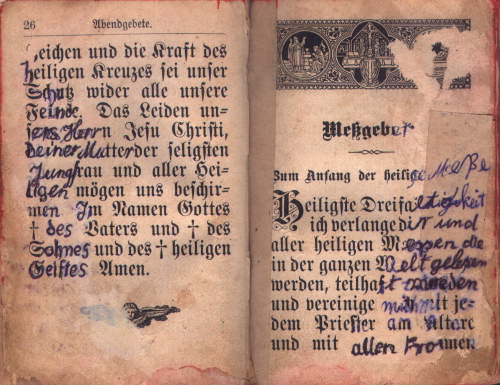 26 Abendgebete.
Zeichen und die Kraft des
heiligen Kreuzes sei unser
Schutz wider alle unsere
Feinde. Das Leiden un-
sers Herrn Jesu Christi,
deiner Mutter der seligsten
Jungfrau und aller Hei-
ligen mögen uns beschir-
men Im Namen Gottes
† des Vaters und † des
Sohnes und des † heiligen
Geistes Amen.
Meßgebet
Zum Anfang der heilige Meße
Heiligste Dreifaltigkeit
ich verlange dir und
aller heiligen Messen die
in der ganzen Welt gelesen
werden, teilhaft
und vereinige mich mit je-
dem Priester am Altare
und mit allen Frommen